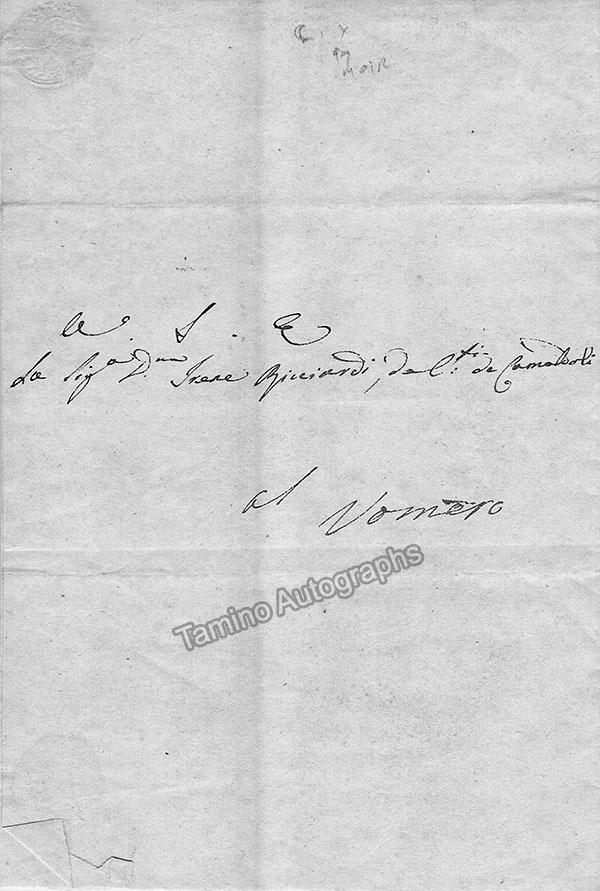 A. S. E.
La Sig.a D.na Irene Ricciardi, de C.ti de Camaldoli
al Vomero
Tamino Autographs